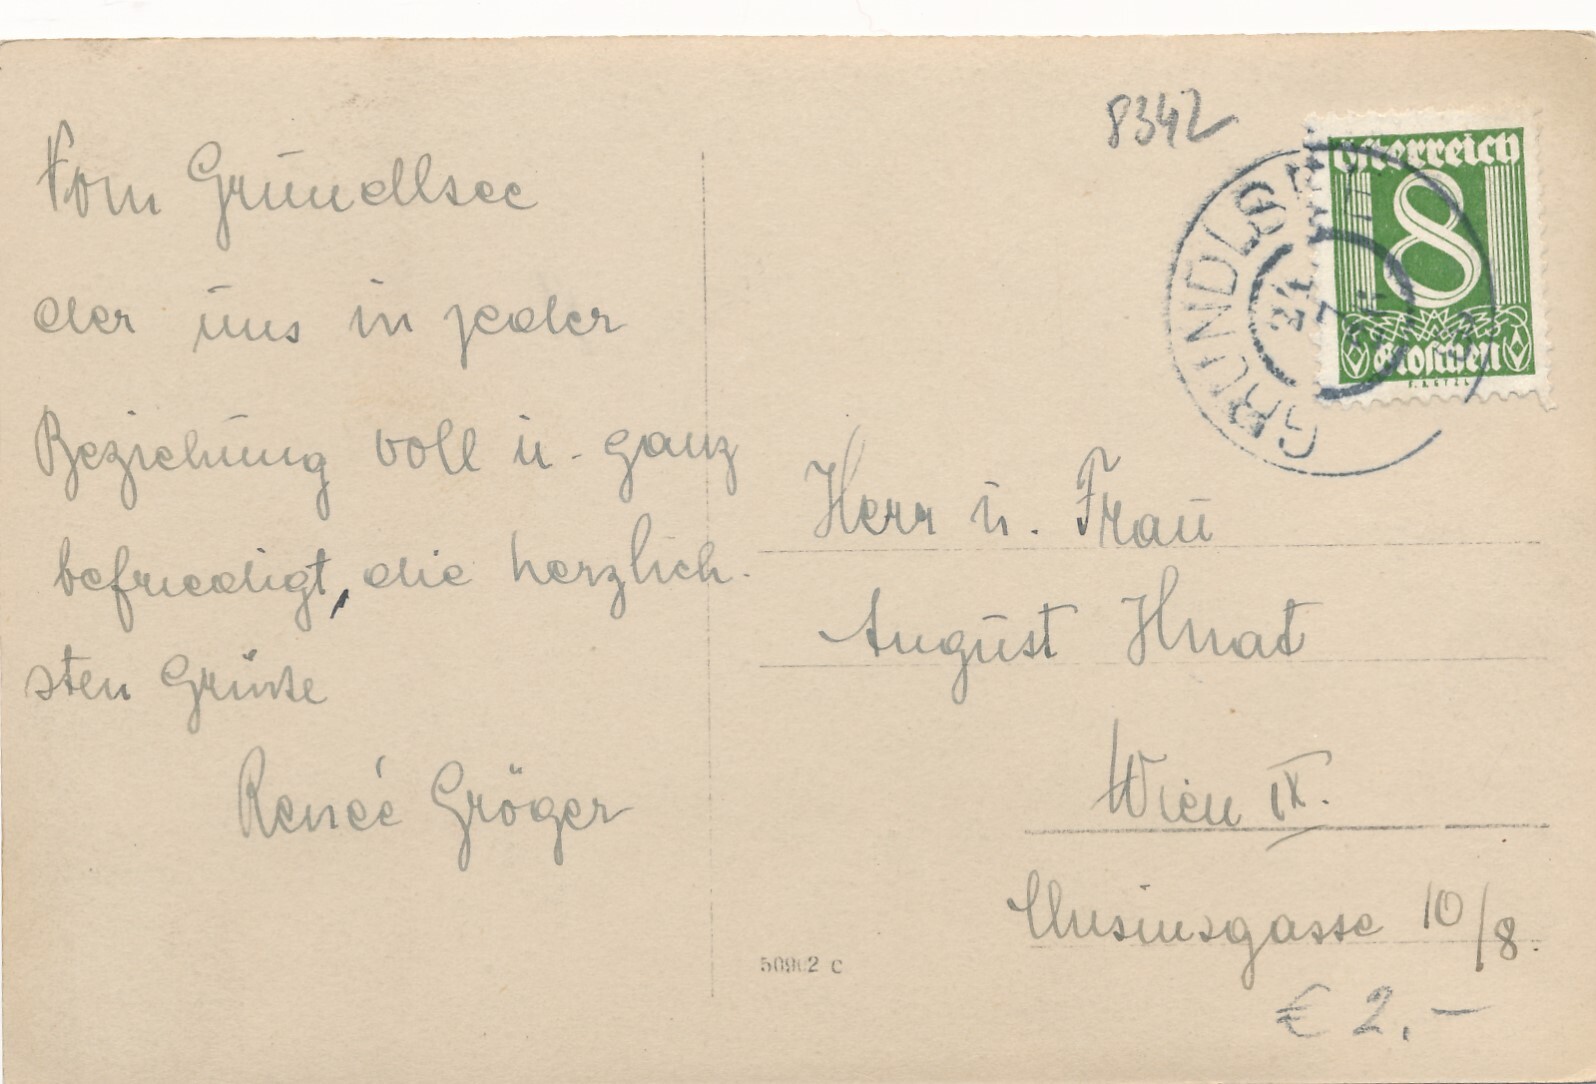 8342
österreich
8
Groschen
GRUNDLSEE
Vom Grundlsee
der uns in jeder
Beziehung voll u. ganz
befriedigt, die herzlich-
sten Grüße
Renée Gröger
Herr u. Frau
August Hnat
Wien IX.
Clusiusgasse 10/8.
50902 C
€ 2,-